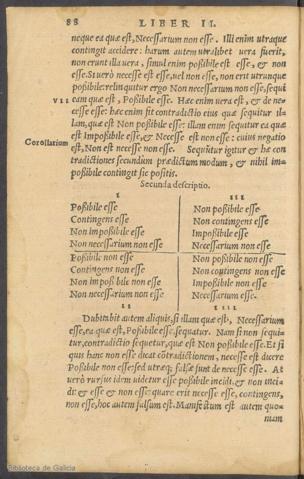 88 LIBER II.
neque ea quæ est, Necessarium non esse. Illi enim utraque
contingit accidere: harum autem utralibet vera fuerit,
non erunt illa vera, simul enim possibile est esse, & non
esse. Si verò necesse est esse, vel non esse, non erit utrunque
possibile: relinquitur ergo Non necessarium non esse, sequi
VII eam quæ est, Possibile esse. Hæc enim vera est, & de ne-
cesse esse: hæc enim fit contradictio eius quæ sequitur il-
lam, quæ est Non possibile esse: illam enim sequitur ea quæ
est Impossibile esse, & Necesse est non esse: cuius negatio
Corollarium est, Non est necesse non esse. Sequuntur igitur & hæ con
tradictiones secundum prædictum modum, & nihil im-
possibile contingit sic positis.
Secunda descriptio.
I III
Possibile esse Non possibile esse
Contingens esse Non contingens esse
Non impossibile esse Impossibile esse
Non necessarium non esse Necessarium non esse
Possibile non esse Non possibile non esse
Contingens non esse Non contingens non esse
Non impossibile non esse Impossibile non esse
Non necessarium non esse Necessarium esse.
II IIII
Dubitabit autem aliquis, si illam quæ est, Necessarium
esse, ea quæ est, Possibile esse sequatur. Nam si non sequi-
tur, contradictio sequetur, quæ est Non possibile esse. Et si
quis hanc non esse dicat cōtradictionem, necesse est dicere
Possibile non esse: sed utræq; falsæ sunt de necesse esse. At
verò rursus idem videtur esse possibile incidi, & non inci
di: & esse & non esse: quare erit necesse esse, contingens,
non esse, hoc autem falsum est. Manifestum est autem quo-
niam
Biblioteca de Galicia